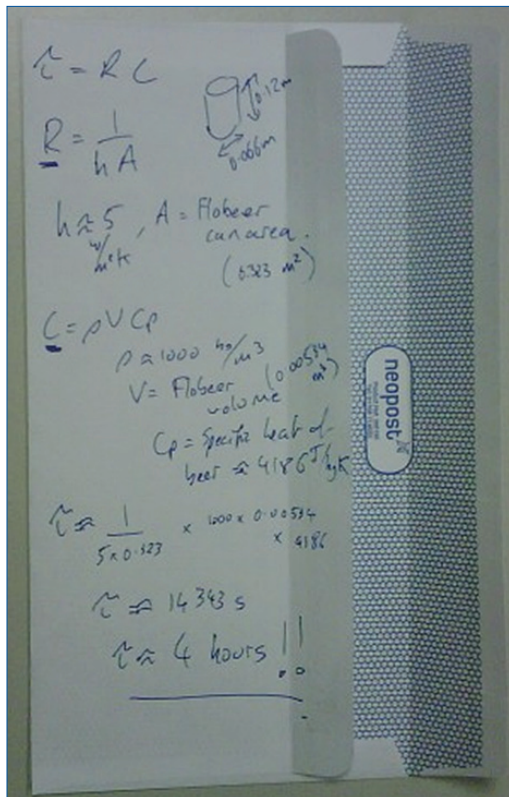 τ = R C
0.12m
0.066m
R = 1 / hA
h ≈ 5 W/m²K, A = Flobeer can area.
(0.323 m²)
C = ρ V Cp
ρ ≈ 1000 kg/m³
V = Flobeer volume (0.00534 m³)
Cp = Specific heat of
beer ≈ 4186 J/kgK
τ ≈ 1 / 5 x 0.323 x 1000 x 0.00534
x 4186
τ ≈ 14343 s
τ ≈ 4 hours !!
neopost